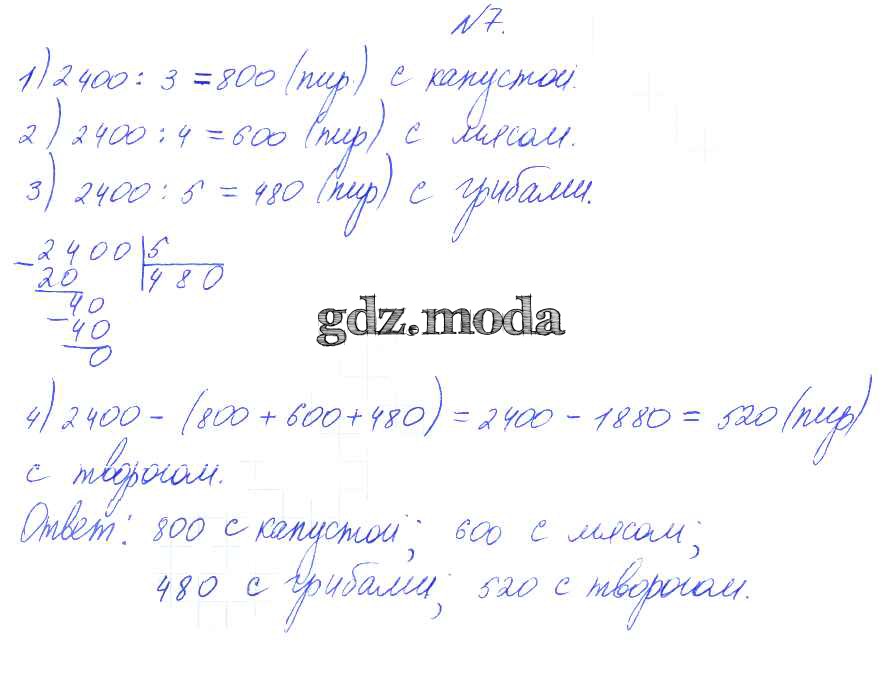 №7.
1) 2400 : 3 = 800 (пир) с капустой.
2) 2400 : 4 = 600 (пир) с мясом.
3) 2400 : 5 = 480 (пир) с грибами.
− 2400 | 5
20 480
− 40
40
0
gdz.moda
4) 2400 − (800 + 600 + 480) = 2400 − 1880 = 520 (пир)
с творогом.
Ответ: 800 с капустой; 600 с мясом;
480 с грибами; 520 с творогом.